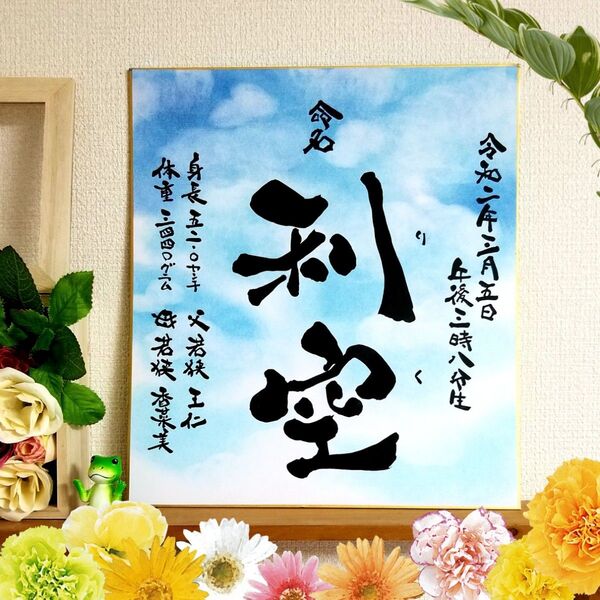 令和二年三月五日
午後三時八分生
命名
利空
りく
身長 五二・〇センチ
体重 三四四〇グラム
父 若狭 王仁
母 若狭 香菜美